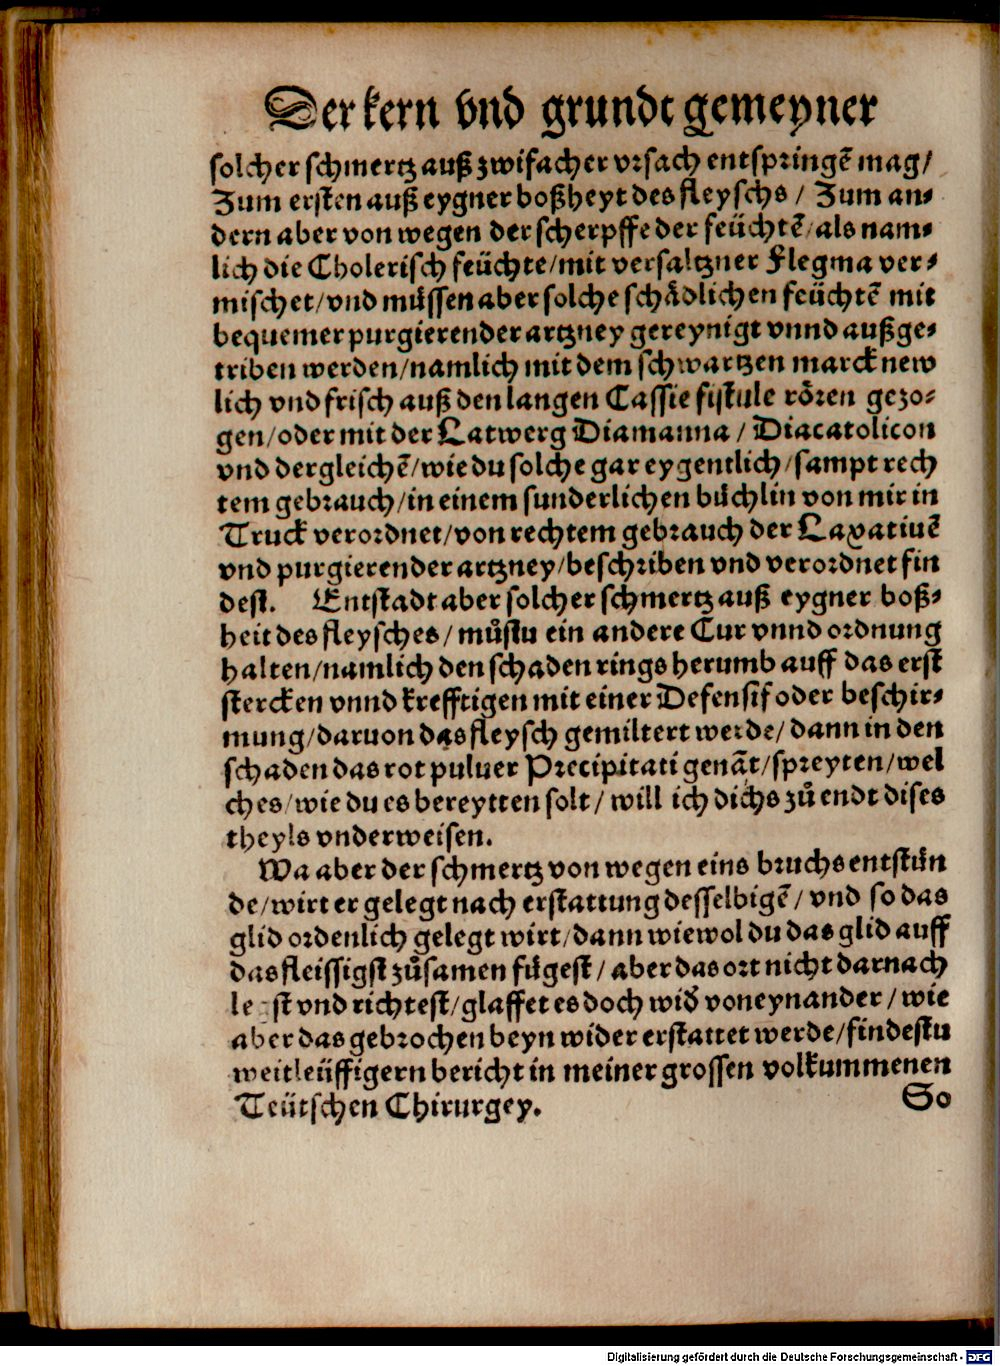 Der kern vnd grundt gemeyner
solcher schmertz auß zwifacher vrsach entspringē mag/
Zum ersten auß eygner boßheyt des fleyschs / Zum an⸗
dern aber von wegen der scherpffe der feüchtē/als nam⸗
lich die Cholerisch feüchte/mit versaltzner Flegma ver⸗
mischet/vnd müssen aber solche schädlichen feüchtē mit
bequemer purgierender artzney gereynigt vnnd außge⸗
triben werden/namlich mit dem schwartzen marck new
lich vnd frisch auß den langen Cassie fistule rören gezo⸗
gen/oder mit der Latwerg Diamanna / Diacatolicon
vnd dergleichē/wie du solche gar eygentlich/sampt rech
tem gebrauch/in einem sunderlichen büchlin von mir in
Truck verordnet/von rechtem gebrauch der Laxatiuē
vnd purgierender artzney/beschriben vnd verordnet fin
dest. Entstadt aber solcher schmertz auß eygner boß⸗
heit des fleysches / můstu ein andere Cur vnnd ordnung
halten/namlich den schaden rings herumb auff das erst
stercken vnnd krefftigen mit einer Defensif oder beschir⸗
mung/daruon das fleysch gemiltert werde/ dann in den
schaden das rot puluer Precipitati genāt/spreyten/wel
ches/wie du es bereytten solt / will ich dichs zů endt dises
theyls vnderweisen.
Wa aber der schmertz von wegen eins bruchs entstün
de/wirt er gelegt nach erstattung desselbigē/ vnd so das
glid ordenlich gelegt wirt/dann wiewol du das glid auff
das fleissigst zůsamen fügest / aber das ort nicht darnach
le st vnd richtest/glaffet es doch wid̕ voneynander / wie
aber das gebrochen beyn wider erstattet werde/findestu
weitleüffigern bericht in meiner grossen volkummenen
Teütschen Chirurgey.
So
Digitalisierung gefördert durch die Deutsche Forschungsgemeinschaft - DFG